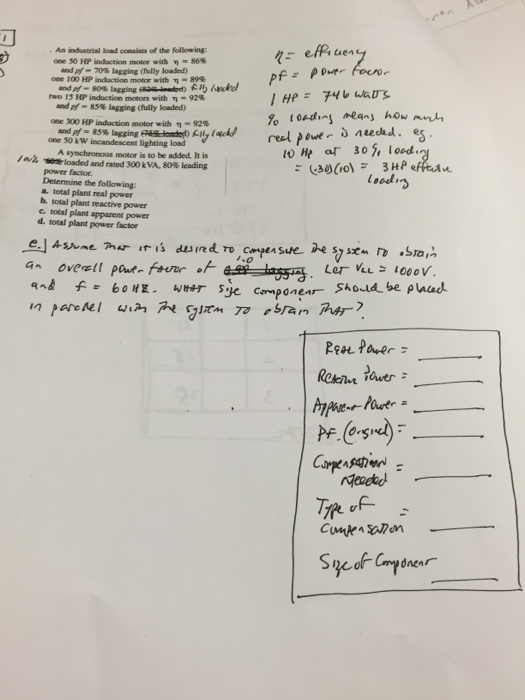 1
An industrial load consists of the following:
one 50 HP induction motor with η = 86%
and pf = 70% lagging (fully loaded)
one 100 HP induction motor with η = 89%
and pf = 80% lagging fully loaded
two 15 HP induction motors with η = 92%
and pf = 85% lagging (fully loaded)
one 300 HP induction motor with η = 92%
and pf = 85% lagging fully loaded
one 50 kW incandescent lighting load
A synchronous motor is to be added. It is
100% loaded and rated 300 kVA, 80% leading
power factor.
Determine the following:
a. total plant real power
b. total plant reactive power
c. total plant apparent power
d. total plant power factor
η = efficiency
pf = power factor
1 HP = 746 watts
% loading means how much
real power is needed. eg.
10 Hp at 30% loading
= (.30)(10) = 3 HP effective
loading
e.) Assume that it is desired to compensate the system to obtain
an overall power factor of 1.0 lagging. Let VLL = 1000V.
and f = 60 Hz. What size component should be placed
in parallel with the system to obtain that?
Real Power =
Reactive Power =
Apparent Power =
Pf. (original) =
Compensation =
Needed
Type of =
Compensation
Size of Component